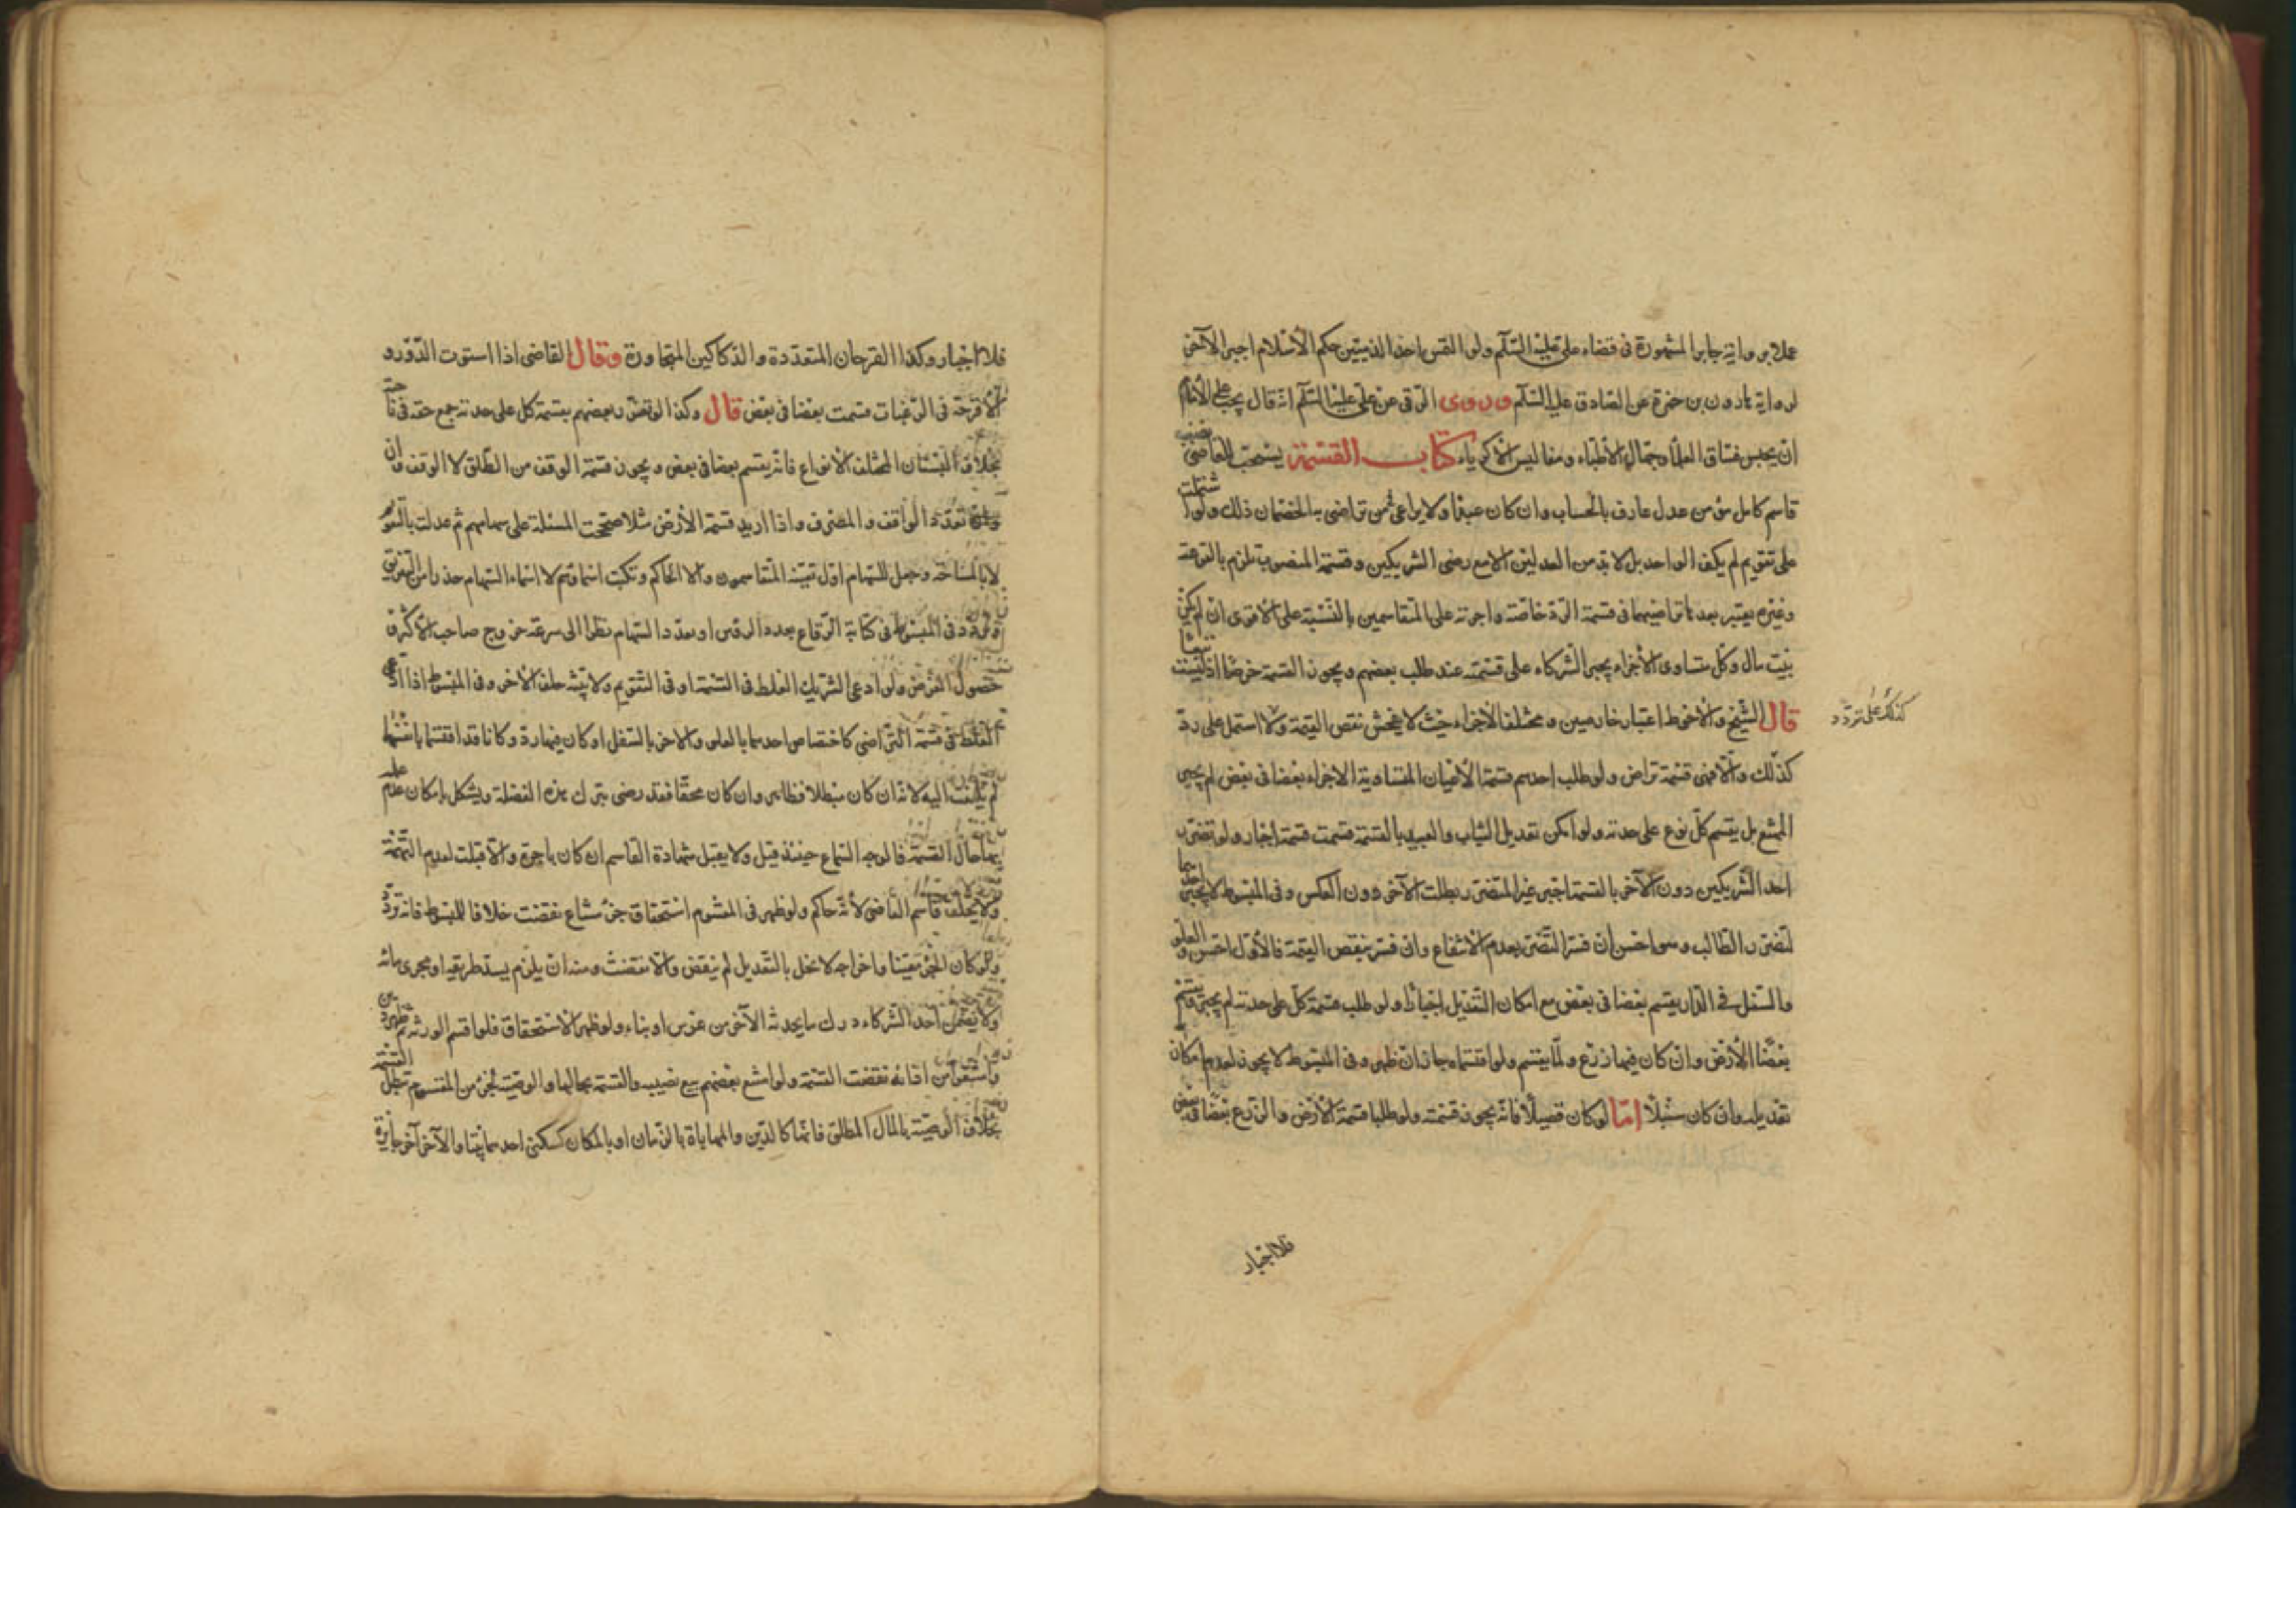 عملا برواية جابر المشهورة في قضاء علي عليه السلام ولو التمس احد الذميين حكم الاسلام اجبر الآخر
لرواية هارون بن حمزة عن الصادق عليه السلام وروى البرقي عن علي عليه السلام انه قال يجب على الامام
ان يحبس فساق العلماء وجهال الاطباء ومفاليس الاكرياء كتاب القسمة يستحب للقاضي نصب
قاسم كامل مؤمن عدل عارف بالحساب وان كان عبدا ولا يراعى فمن تراضى به الخصمان ذلك ولو اشتملت
على تقويم لم يكف الواحد بل لا بد من العدلين الا مع رضى الشريكين وقسمة المنصوب تلزم بالقرعة
وغيره يعتبر بعدها تراضيهما في قسمة الرد خاصة واجرته على المتقاسمين بالنسبة على الاقوى ان لم يكن
بيت مال وكل متساوى الاجزاء يجبر الشركاء على قسمته عند طلب بعضهم ويجوز القسمة خرصا اذ ليست بيعا
قال الشيخ والاحوط اعتبار خارصين ومختلف الاجزاء حيث لا يفحش نقص القيمة ولا اشتمل على رد
كذلك على تردد
كذلك والا فهى قسمة تراض ولو طلب احدهم قسمة الاعيان المتساوية الاجزاء بعضا في بعض لم يجبر
الممتنع بل يقسم كل نوع على حدته ولو امكن تعديل الثياب والعبيد بالقسمة قسمت قسمة اجبار ولو تضرر
احد الشريكين دون الآخر بالقسمة اجبر غير المتضرر بطلب الآخر دون العكس وفي المبسوط لا يجبر احدهما
لتضرر الطالب وهو احسن ان فسر التضرر بعدم الانتفاع وان فسر بنقص القيمة فالأول احسن والعلو
والسفل في الدار يقسم بعضا في بعض مع امكان التعديل اجبارا ولو طلب قسمة كل على حدته لم يجبر ويقسم
بعضا الأرض وان كان فيها زرع ولما يقسم ولو اقتسماه جاز ان ظهر وفي المبسوط لا يجوز لعدم امكان
تعديله وان كان سنبلا امّا لو كان قصيلا فانه يجوز قسمته ولو طلبا قسمة الأرض والزرع بعضا في بعض
فلا اجبار
فلا اجبار وكذا القرحان المتعددة والدكاكين المتجاورة وقال القاضى اذا استوت الدور و
الاقرحة في الرغبات قسمت بعضا في بعض قال وكذا لو تضرر بعضهم بقسمة كل على حدته جمع حقه في ناحية
بخلاف البستان المختلف الانواع فانه يقسم بعضا في بعض ويجوز قسمة الوقف من الطلق لا الوقف وان
تعدد الواقف والمصرف واذا اريد قسمة الأرض مثلا صححت المسئلة على سهامهم ثم عدلت بالتقويم
لا بالمساحة وجعل للسهام اول تعينه المتقاسمون والا الحاكم وتكتب اسماؤهم لا اسماء السهام حذرا من التفريق
وتردد في المبسوط في كتابة الرقاع بعدد الرؤس او بعدد السهام نظرا الى سرعة خروج صاحب الأكثر و
حصول الغرض ولو ادعى الشريك الغلط في القسمة او في التقويم ولا بينة حلف الآخر وفي المبسوط اذا ادعى
الغلط في قسمة التراضى كاختصاص احدهما بالعلو والاخر بالسفل او كان فيها رد وكانا قد اقتسما بانفسهما
لم يلتفت اليه لأنه ان كان مبطلا فظاهر وان كان محقا فقد رضى بترك هذه الفضلة ويشكل بامكان عدم علمه
بها حال القسمة فالوجه السماع حينئذ قيل ولا يقبل شهادة القاسم ان كان باجرة والا قبلت لعدم التهمة
ولا يحلف قاسم القاضى لأنه حاكم ولو ظهر في المقسوم استحقاق جزء مشاع نقضت خلافا للمبسوط فانه تردد
ولو كان الجزء معينا واخراجه لا يخل بالتعديل لم ينقض والا نقضت ومنه ان يلزم بسد طريقه او مجرى مائه
ولا يضمن احد الشركاء درك ما يحدثه الآخر من غرس او بناء ولو ظهر الاستحقاق فلو اقسم الورثة ثم ظهر دين
وامتنعوا من ادائه نقضت القسمة ولو امتنع بعضهم بيع نصيبه والقسمة بحالها والوصية بجزء من المقسوم تبطل القسمة
بخلاف الوصية بالمال المطلق فانها كالدين والمهاياة بالزمان او بالمكان كسكنى احدهما بيتا والآخر آخر جايزة